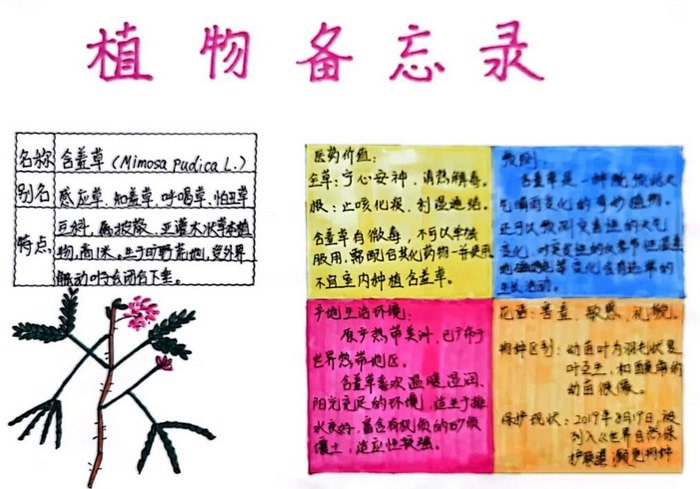 植物备忘录
名称 含羞草（Mimosa pudica L.）
别名 感应草、知羞草、呼喝草、怕丑草
特点 豆科，亚灌木状草本植
物，高1米。生于旷野荒地，受外界
触动叶子会闭合下垂。
医药价值：
全草：宁心安神，清热解毒。
根：止咳化痰，利湿通络。
含羞草有微毒，不可以单独
服用，需配合其他药物一并使用
不宜室内种植含羞草。
预测：
含羞草是一种能预兆天
气晴雨变化的奇妙植物。
还可以预测灾害性的天气
变化，
等变化含有
生长活动。
产地生活环境：
原产热带美洲，已广布于
世界热带地区。
含羞草喜欢温暖湿润、
阳光充足的环境，适生于排
水良好，富含有机质的砂质
壤土，适应性较强。
花语：害羞，敏感，礼貌。
物种区别：幼苗叶为羽毛状复
叶互生，和酸角的
幼苗很像。
保护现状：2019年3月19日，被
列入《世界自然保
护联盟 濒危物种